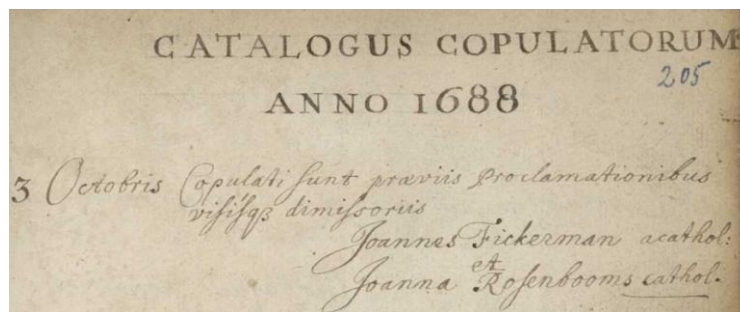 CATALOGUS COPULATORUM
205
ANNO 1688
3 Octobris Copulati sunt præviis proclamationibus
visisqз dimissoriis
Joannes Fickerman acathol:
et
Joanna Rosenbooms cathol.